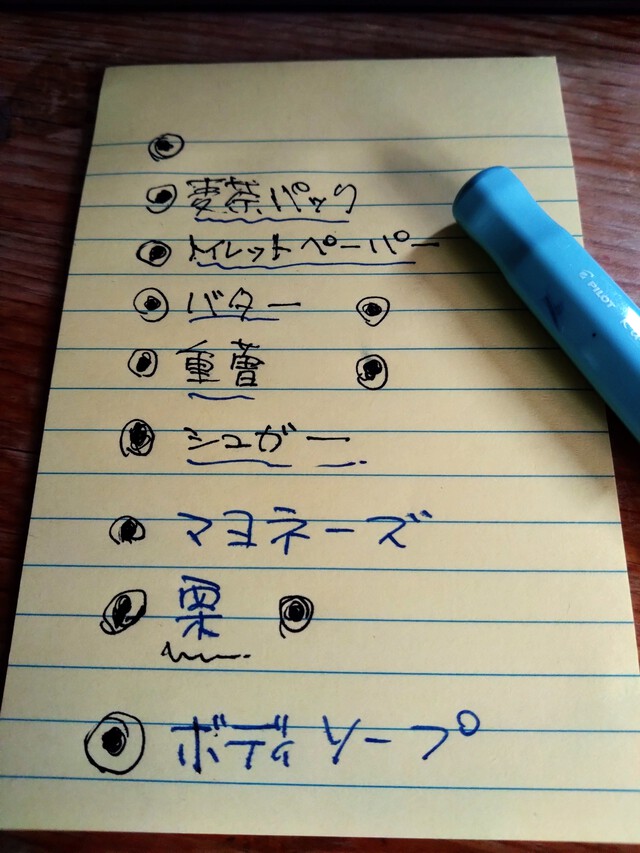 麦茶パック
トイレットペーパー
バター
重曹
シュガー
マヨネーズ
栗
ボディソープ
PILOT